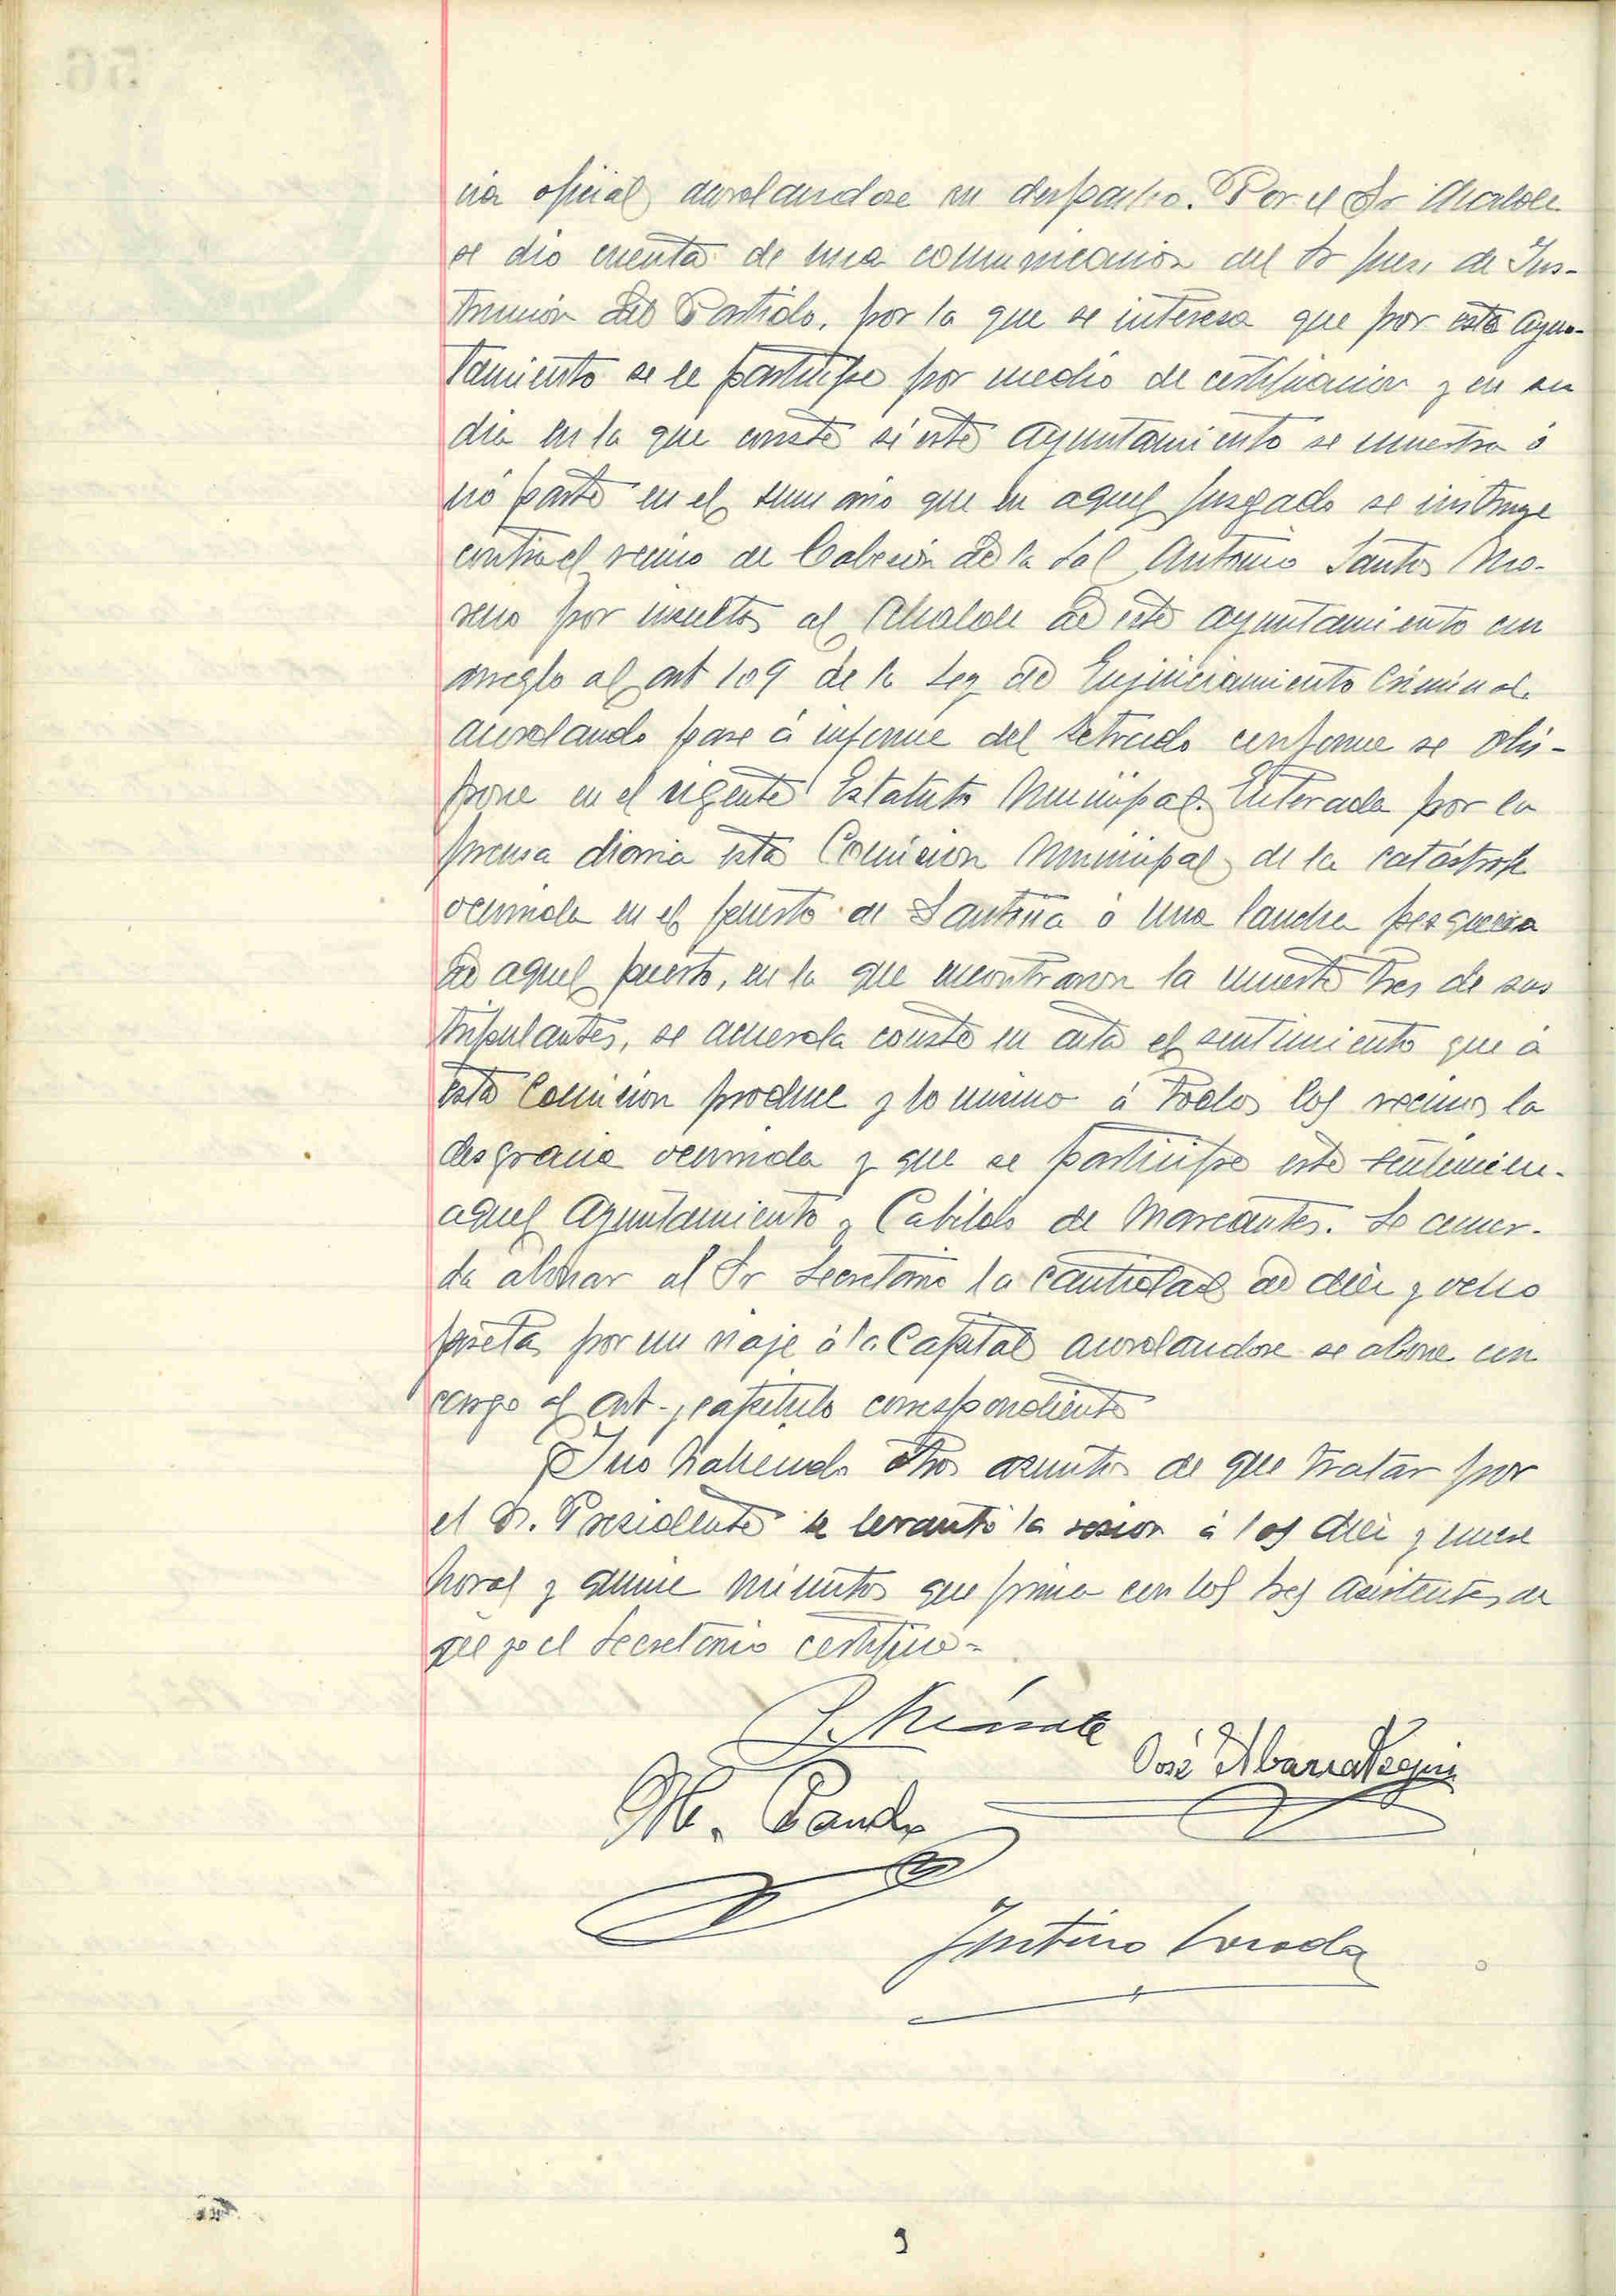 cia oficial acordandose su despacho. Por el Sr Alcalde
se dio cuenta de una comunicacion del Sr Juez de Ins-
trucción del Partido, por la que se interesa que por este Ayun-
tamiento se le participe por medio de certificacion y en su
dia en la que conste si este Ayuntamiento se muestra ó
nó parte en el sumario que en aquel Juzgado se instruye
contra el vecino de Cabezón de la Sal Antonio Santos Mo-
reno por insultos al Alcalde de este Ayuntamiento con
arreglo al art 109 de la Ley de Enjuiciamiento Criminal.
acordando pase á informe del Letrado conforme se dis-
pone en el vigente Estatuto Municipal. Enterada por la
prensa diaria esta Comision Municipal de la catástrofe
ocurrida en el puerto de Santoña á una lancha pesquera
de aquel puerto, en la que encontraron la muerte tres de sus
tripulantes, se acuerda conste en acta el sentimiento que á
esta Comision produce y lo mismo á todos los vecinos la
desgracia ocurrida y que se participe este sentimien-
aquel Ayuntamiento y Cabildo de Mareantes. Se acuer-
da abonar al Sr Secretario la cantidad de diez y ocho
pesetas por un viaje á la Capital acordandose se abone con
cargo al art. y capitulo correspondiente
Y no habiendo otros asuntos de que tratar por
el Sr. Presidente se levantó la sesion á las diez y nueve
horas y quince minutos que firma con los tres asistentes de
que yo el Secretario certifico=
José Abarrategui
M. Pando
Justino
9
56